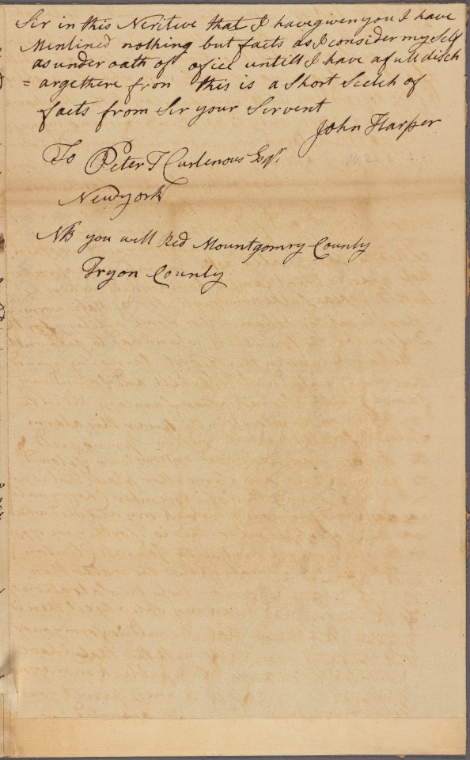 Sir in this Neritive that I have given you I have
Mentined nothing but facts as I consider my self
as under oath of ofice untill I have a full disch
= arge there from this is a Short Scetch of
facts from Sir your Servent
John Harper
To Peter T Curtenous Esqr.
Newyork
NB you will Red Mountgomry County
Tryon County